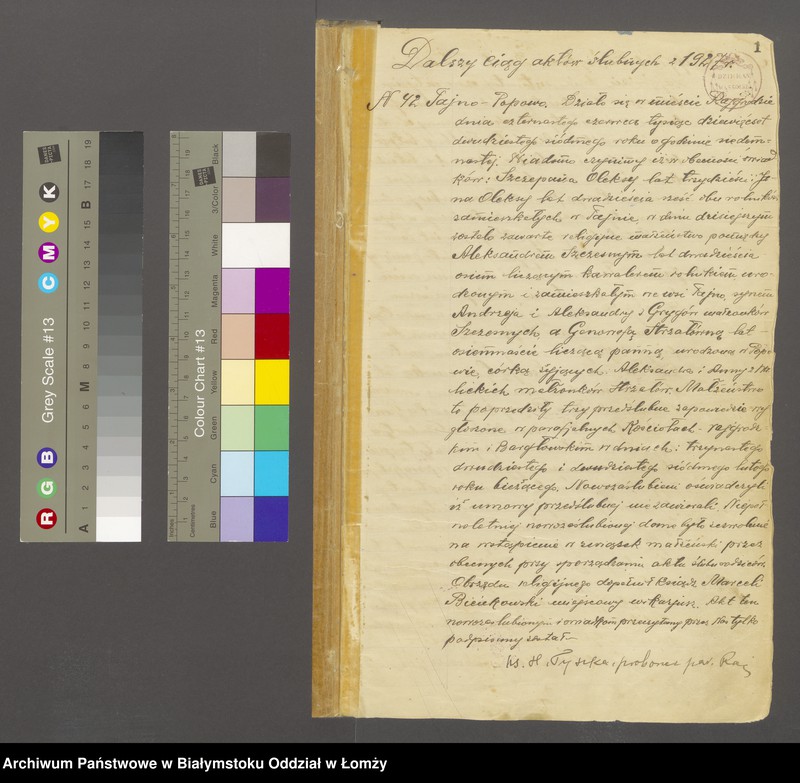 1
Dalszy ciąg aktów ślubnych z 1927 r.
N 42 Tajno-Popowo. Działo się w mieście Rajgrodzie
dnia czternastego czerwca tysiąc dziewięćset
dwudziestego siódmego roku o godzinie siedem-
nastej. Wiadomo czynimy iż w obecności świad-
ków: Szczepana Oleksy lat trzydzieści i Ja-
na Oleksy lat dwadzieścia sześć obu rolników
zamieszkałych w Tajnie, w dniu dzisiejszym
zostało zawarte religijne małżeństwo pomiędzy
Aleksandrem Szczesnym lat dwadzieścia
osiem liczącym kawalerem rolnikiem uro-
dzonym i zamieszkałym we wsi Tajno, synem
Andrzeja i Aleksandry z Grygów małżonków
Szczesnych, a Genowefą Strzałówną lat
osiemnaście liczącą panną, urodzoną w Popo-
wie, córką żyjących Aleksandra i Anny z
małżonków Strzałów. Małżeństwo
to poprzedziły trzy przedślubne zapowiedzie wy-
głoszone w parafjalnych Kościołach Rajgrodz-
kim i Bargłowskim w dniach: trzynastego
dwudziestego i dwudziestego siódmego lutego
roku bieżącego. Nowozaślubieni oświadczyli
iż umowy przedślubnej nie zawierali. Niepeł-
noletniej nowozaślubionej
na wstąpienie w związek małżeński przez
obecnych przy sporządzaniu aktu ślubu rodziców.
Obrzędu religijnego dopełnił Ksiądz Marceli
miejscowy wikarjusz. Akt ten
nowozaślubionym i świadkom przeczytany przez Nas tylko
podpisany został
Ks. H. Tyszka, proboszcz par. Raj
Grey Scale #13
R G B C M Y K
A 1 2 3 4 5 6 M 8 9 10 11 12 13 14 15 B 17 18 19
Colour Chart #13
Blue Cyan Green Yellow Red Magenta White 3/Color Black
Inches
Centimetres
DANES PICTA
Archiwum Państwowe w Białymstoku Oddział w Łomży